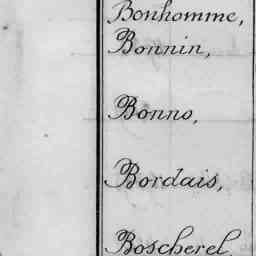 Bonhomme,
Bonnin,
Bonno,
Bordais,
Boscherel,